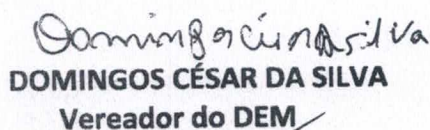 Domingos César da Silva
DOMINGOS CÉSAR DA SILVA
Vereador do DEM